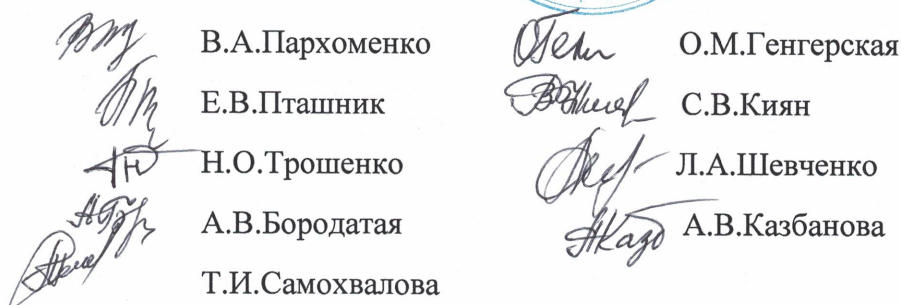 В.А.Пархоменко
Е.В.Пташник
Н.О.Трошенко
А.В.Бородатая
Т.И.Самохвалова
О.М.Генгерская
С.В.Киян
Л.А.Шевченко
А.В.Казбанова